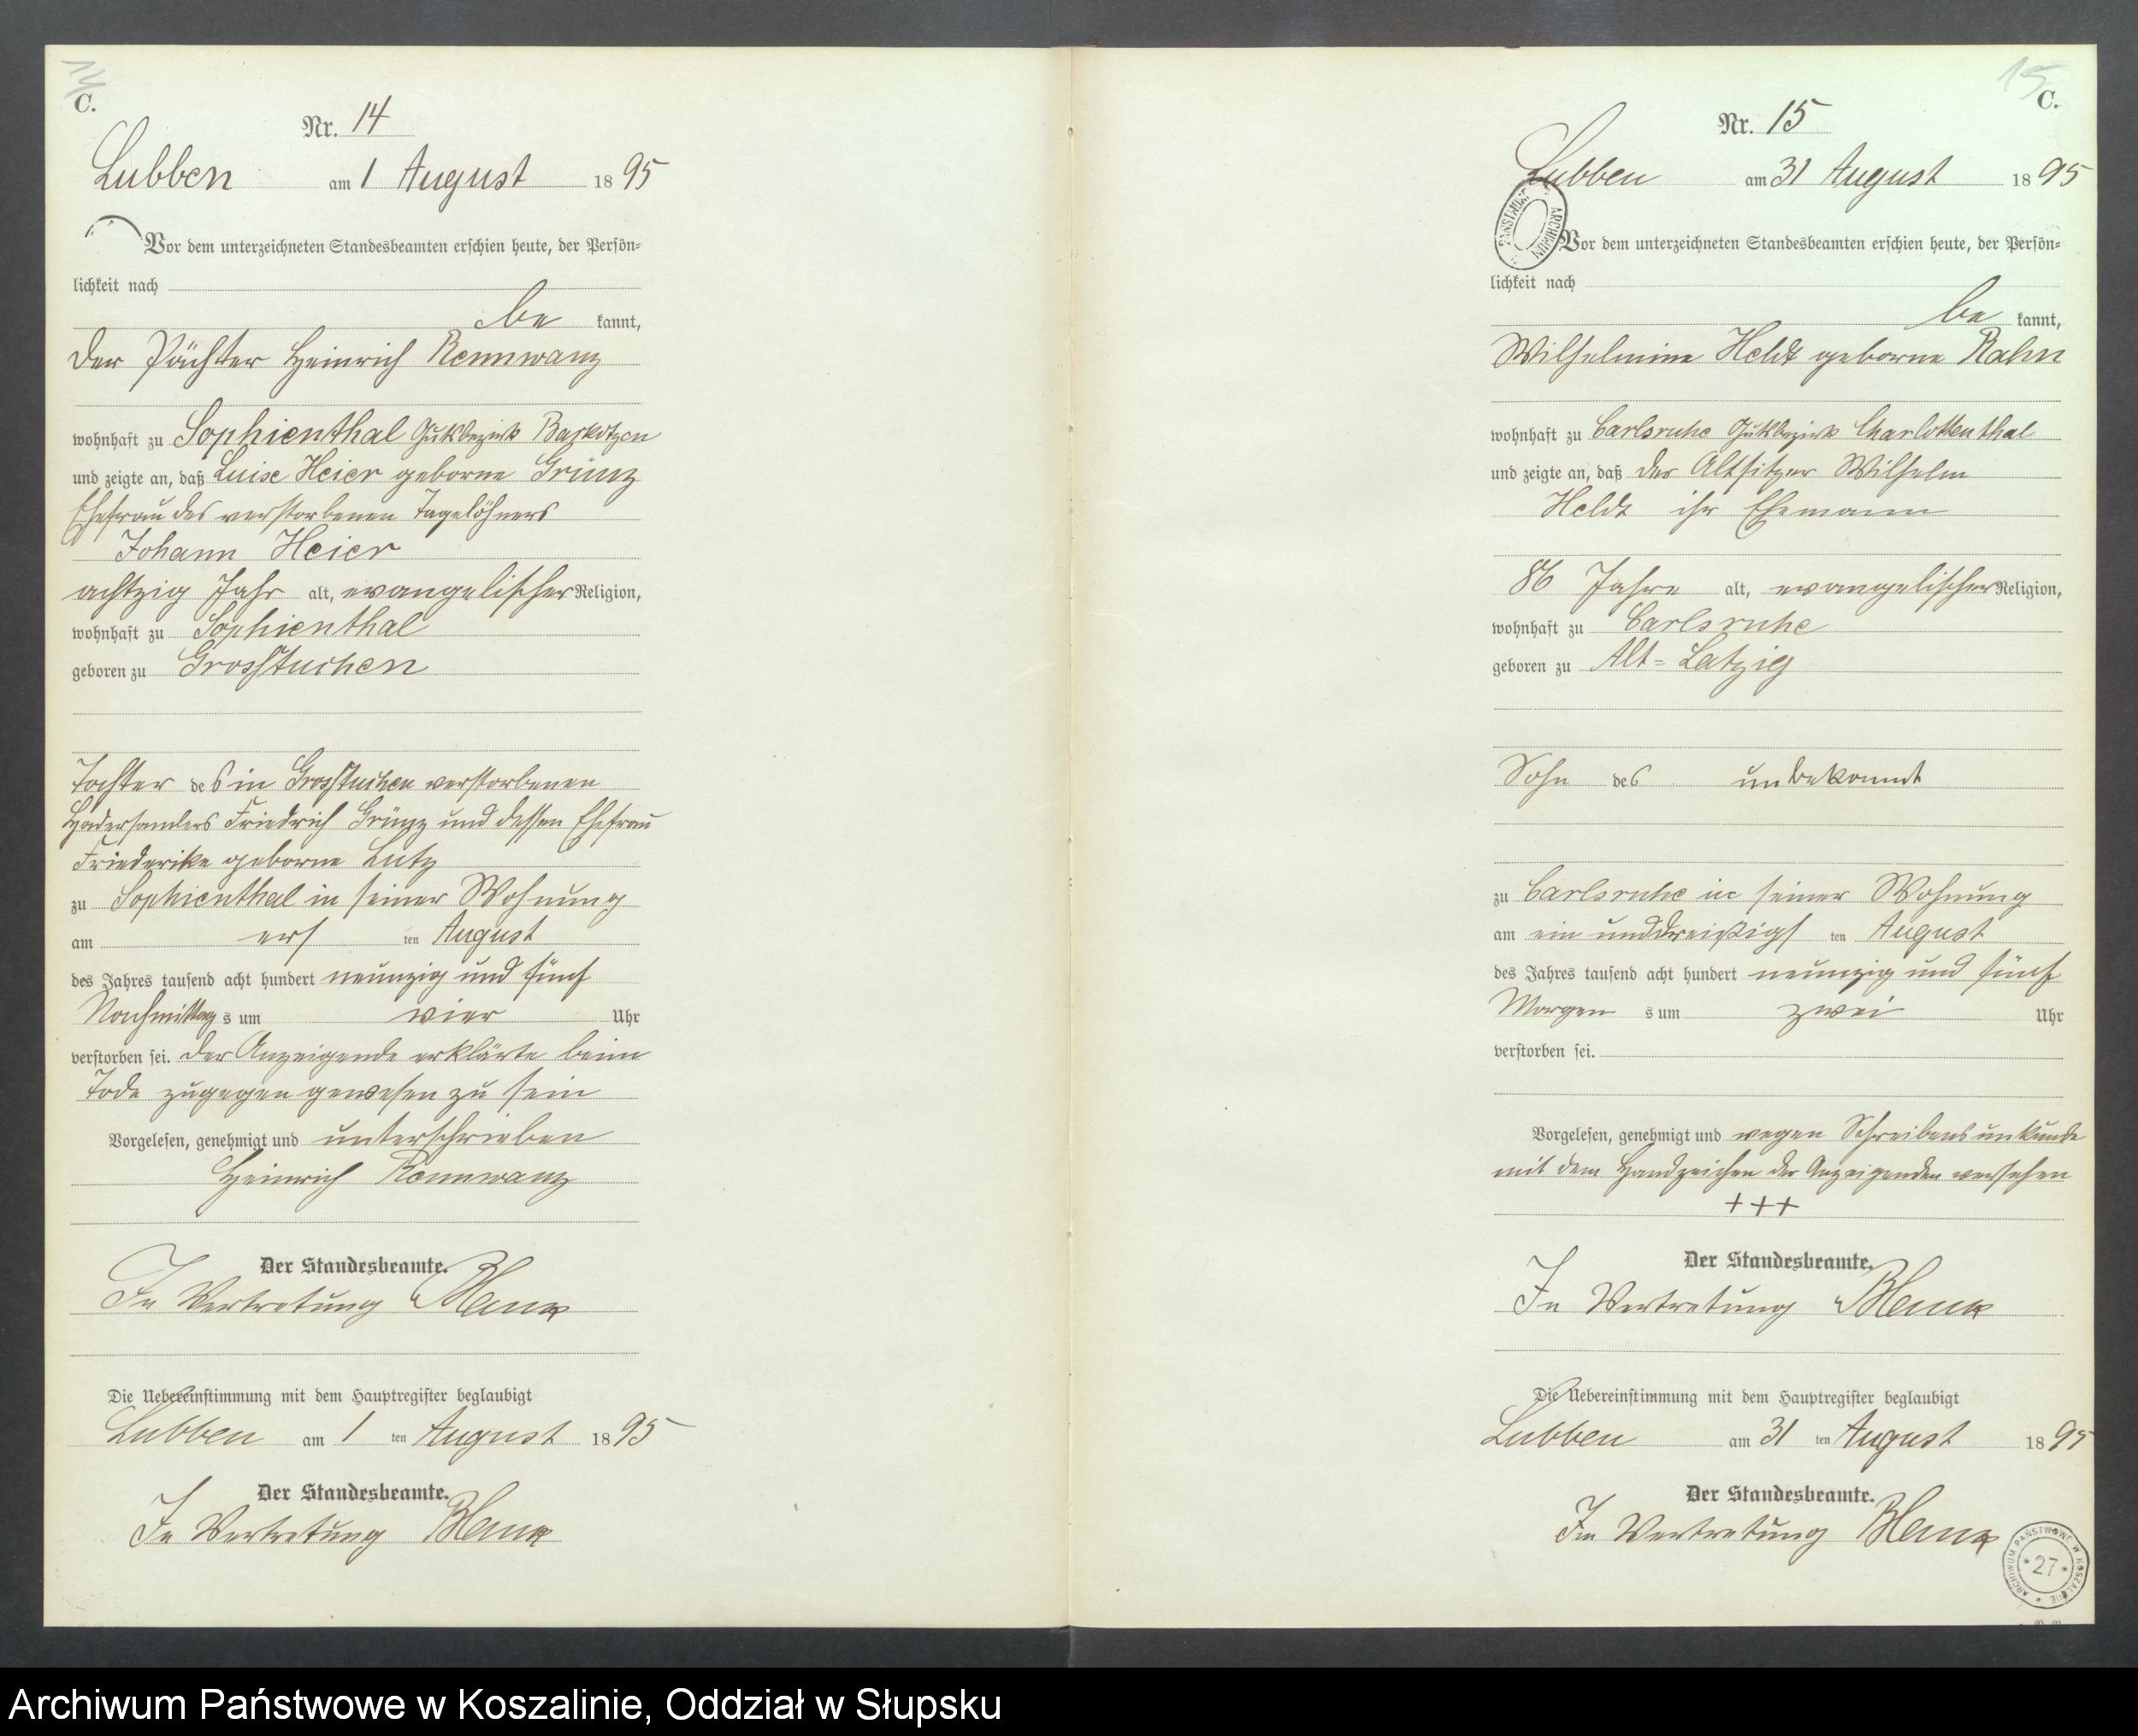 14
C.
Nr. 14
Lubben am 1 August 1895
Vor dem unterzeichneten Standesbeamten erschien heute, der Persön=
lichkeit nach
be kannt,
der Pächter Heinrich Rennwanz
wohnhaft zu Sophienthal Gutsbezirk Barkotzen
und zeigte an, daß Luise Heier geborne Grünz
Ehefrau des verstorbenen Tagelöhners
Johann Heier
achtzig Jahr alt, evangelischer Religion,
wohnhaft zu Sophienthal
geboren zu Grosstuchen
Tochter des in Grosstuchen verstorbenen
Friedrich Grünz und dessen Ehefrau
Friederike geborne Lutz
zu Sophienthal in seiner Wohnung
am erst ten August
des Jahres tausend acht hundert neunzig und fünf
Nachmittag s um vier Uhr
verstorben sei. Der Anzeigende erklärte beim
Tode zugegen gewesen zu sein
Vorgelesen, genehmigt und unterschrieben
Heinrich Rennwanz
Der Standesbeamte.
In Vertretung Blank
Die Uebereinstimmung mit dem Hauptregister beglaubigt
Lubben am 1 ten August 1895
Der Standesbeamte.
In Vertretung Blank
15
C.
Nr. 15
Lubben am 31 August 1895
Vor dem unterzeichneten Standesbeamten erschien heute, der Persön=
lichkeit nach
be kannt,
Wilhelmine Heldt geborne Rahn
wohnhaft zu Carlsruhe Gutsbezirk Charlottenthal
und zeigte an, daß der Altsitzer Wilhelm
Heldt ihr Ehemann
86 Jahre alt, evangelischer Religion,
wohnhaft zu Carlsruhe
geboren zu Alt=Latzig
Sohn des unbekannt
zu Carlsruhe in seiner Wohnung
am ein unddreißigst ten August
des Jahres tausend acht hundert neunzig und fünf
Morgen s um zwei Uhr
verstorben sei.
Vorgelesen, genehmigt und wegen Schreibensunkunde
mit dem Handzeichen der Anzeigenden versehen
+++
Der Standesbeamte.
In Vertretung Blank
Die Uebereinstimmung mit dem Hauptregister beglaubigt
Lubben am 31 ten August 1895
Der Standesbeamte.
In Vertretung Blank
ARCHIWUM PAŃSTWOWE W KOSZALINIE
* 27 *
Archiwum Państwowe w Koszalinie, Oddział w Słupsku